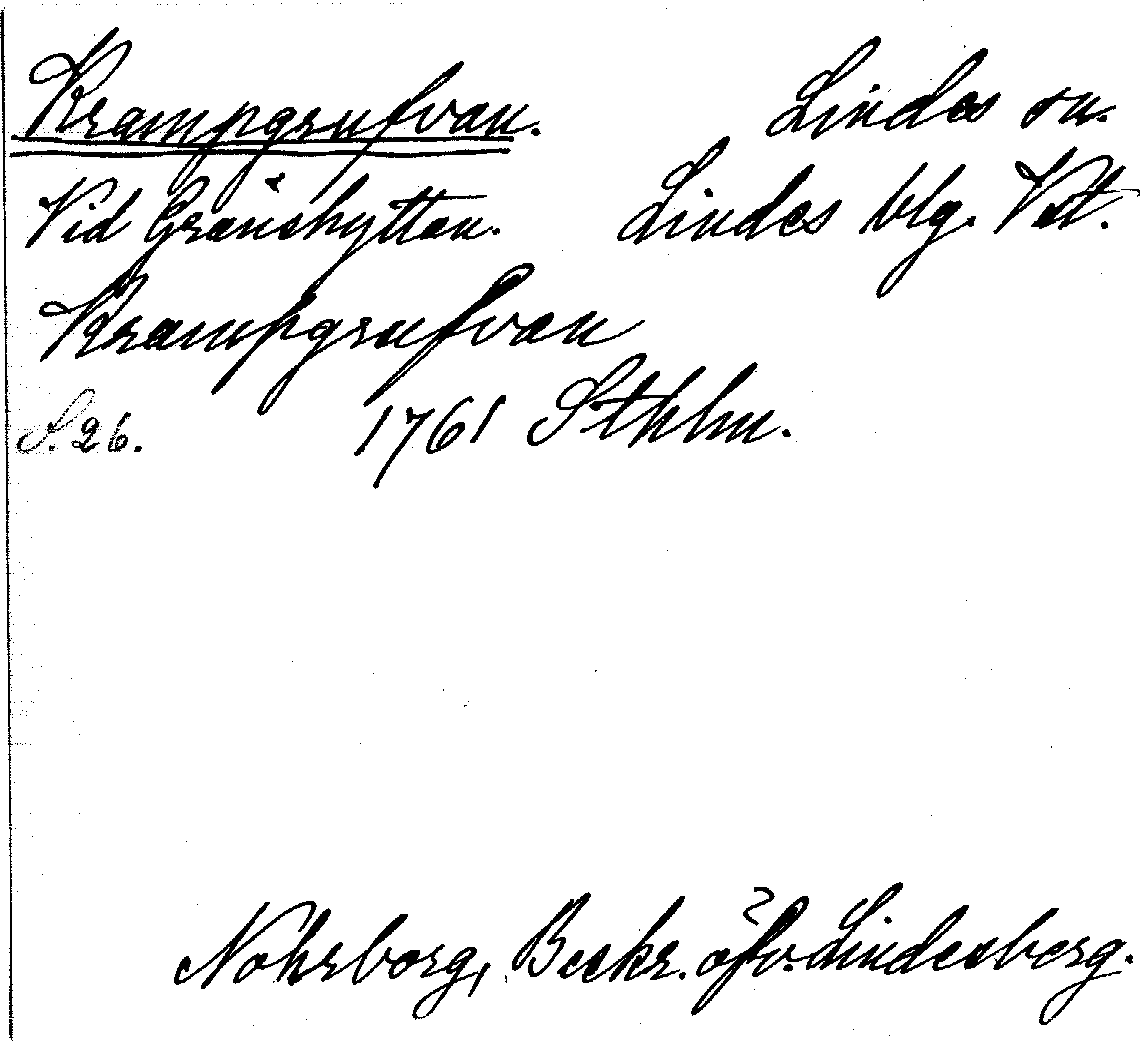 Krampgrufvan. Lindes sn.
Vid Gränshyttan. Lindes blg. Vstl.
Krampgrufvan
S. 26. 1761 Sthlm.
Nohrborg, Beskr. öfv. Lindesberg.